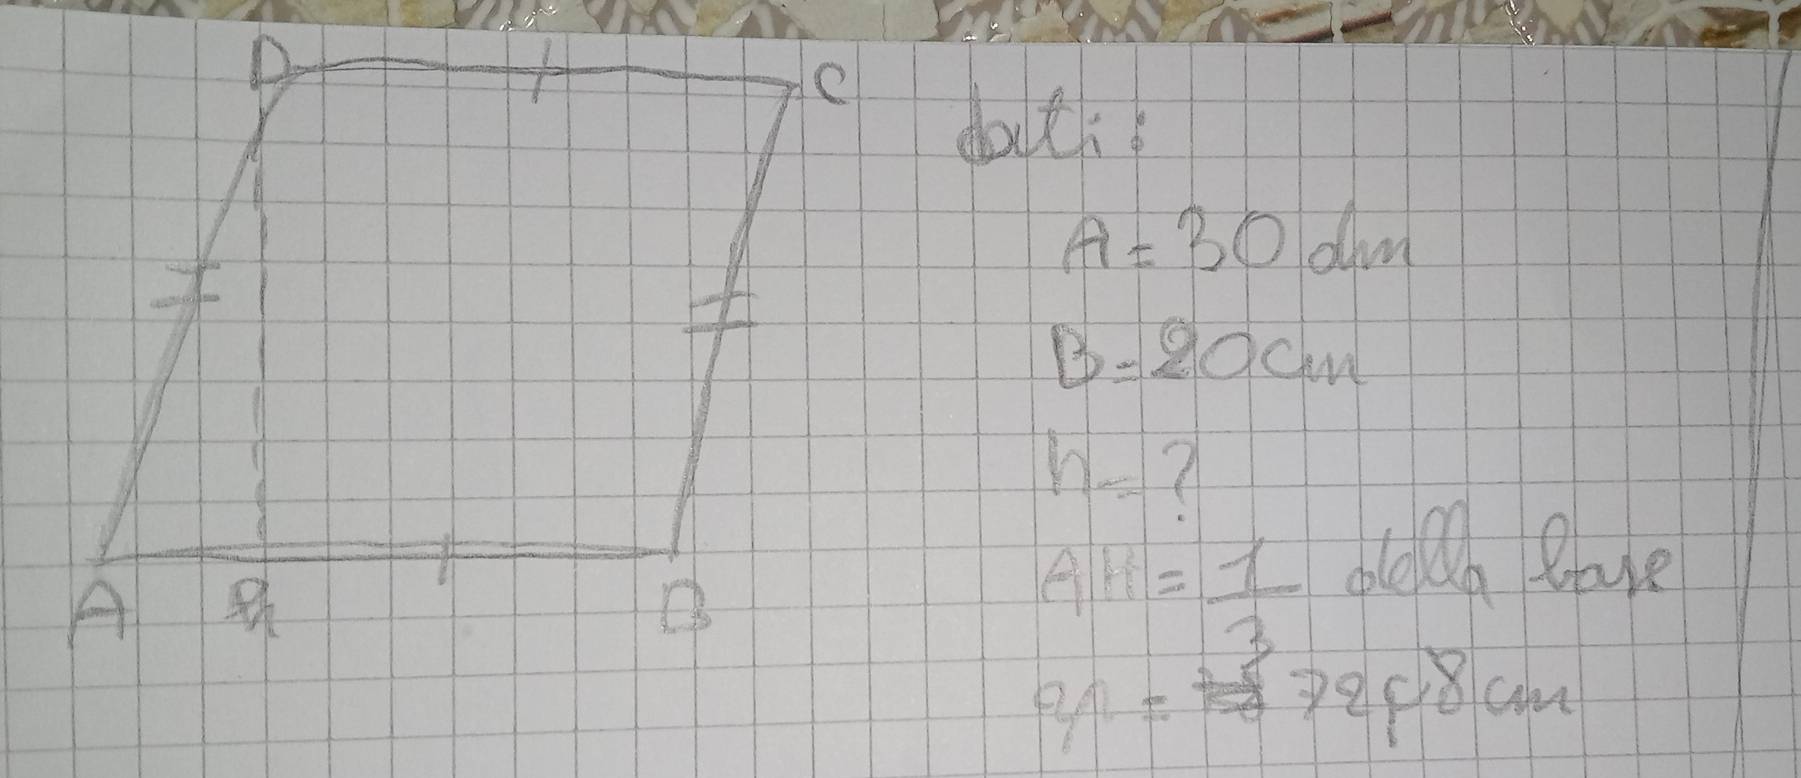 D
C
dati:
A = 30 dm
B = 20 cm
h = ?
AH = 1 della base
3
A
h
B
2p = 72,8 cm